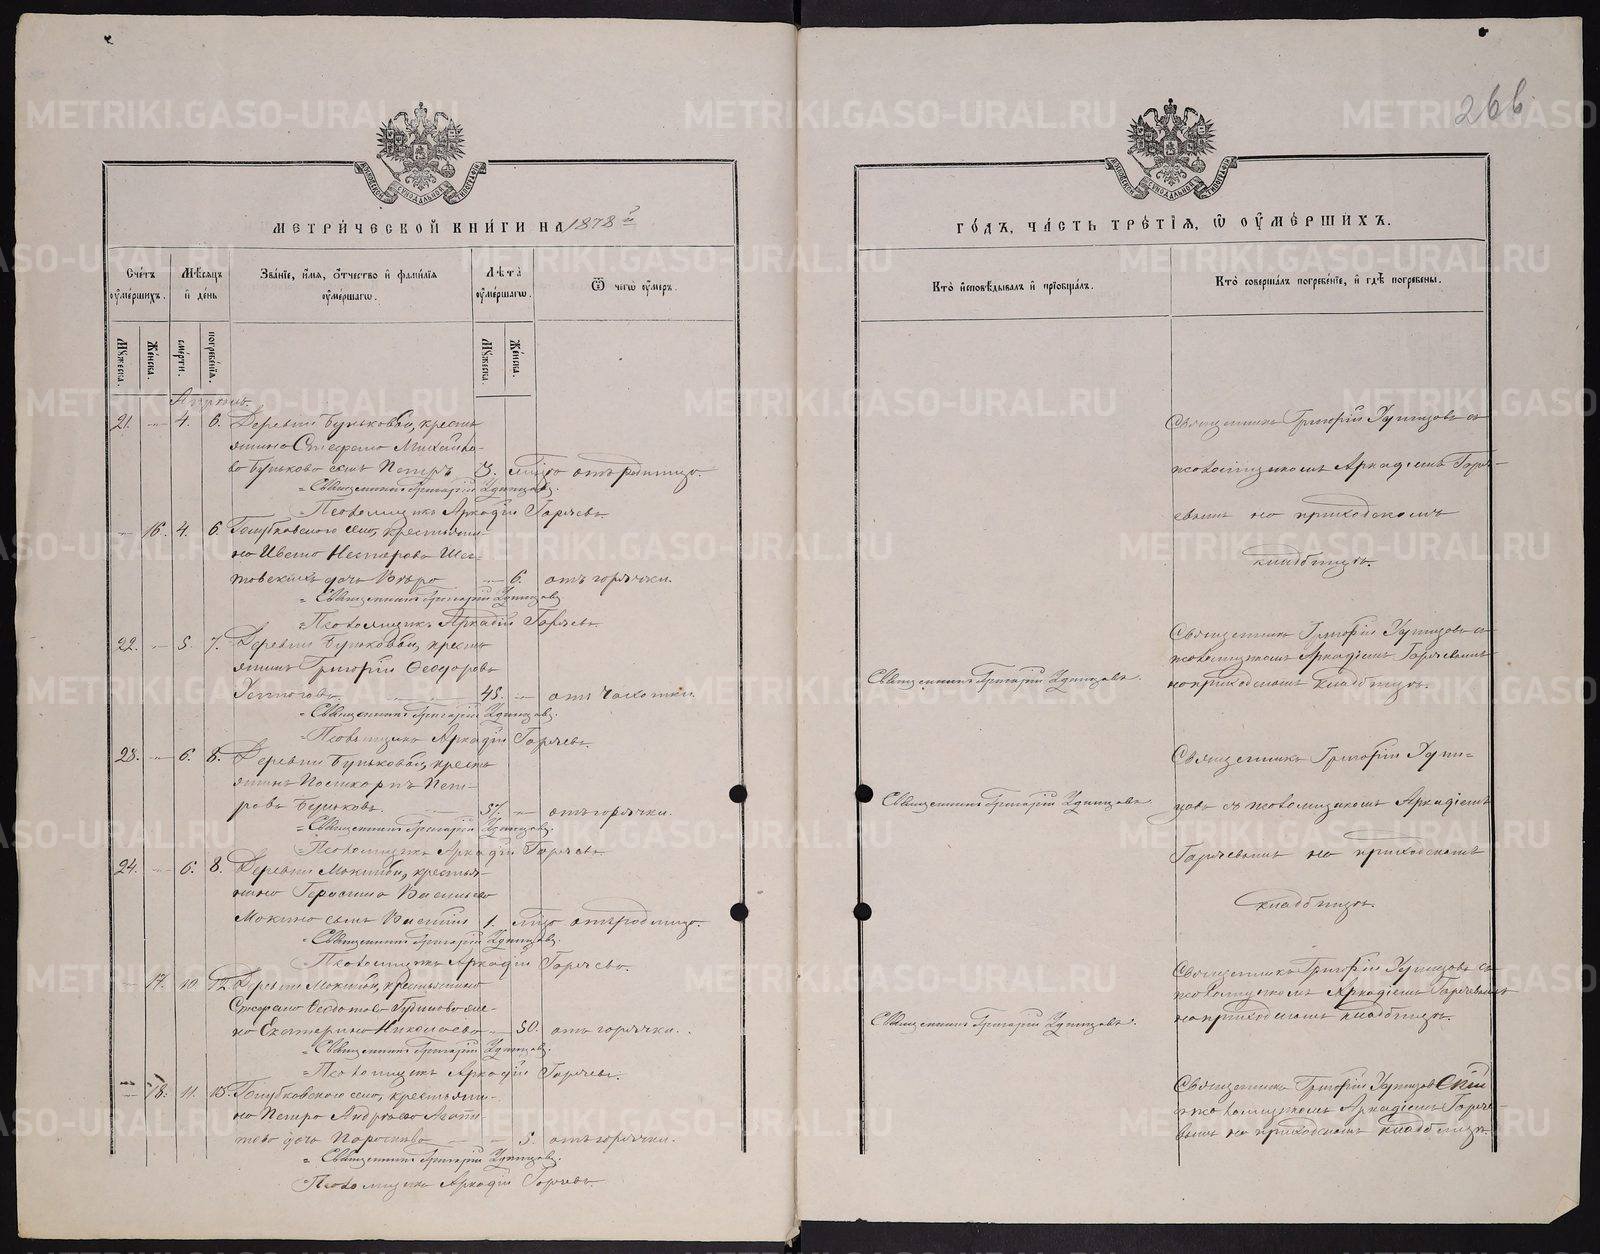 266
МЕТРИ́ЧЕСКОЙ КНИ́ГИ НА 1878 й
Сче́тъ оуме́ршихъ.
Мѣ́сяцъ и҆ де́нь
Зва́нїе, и҆́мѧ, ѻ҆́тчество и҆ фами́лїѧ оуме́ршагѡ.
Лѣ́та оуме́ршагѡ.
Ѿ чегѡ̀ оу́меръ.
Мꙋ́жеска.
Же́нска.
сме́рти.
погребе́нїѧ.
Мꙋ́жеска.
Же́нска.
Апрѣль.
21. — 4. 6. Деревни Буньковой, кресть
янина Стефана Михайло-
ва Бунькова сынъ Петръ 3. мѣс.
Священникъ Григорій Удинцовъ.
Псаломщикъ Аркадій Горячевъ.
— 16. 4. 6. Голубковскаго села, крестьяни-
на Ивана Нестерова
дочь Вѣра — 6. отъ горячки.
Священникъ Григорій Удинцовъ
Псаломщикъ Аркадій Горячевъ.
22. — 5. 7. Деревни Буньковой, кресть
янинъ Григорій Ѳеодоровъ
45. — отъ чахотки.
Священникъ Григорій Удинцовъ.
Псаломщикъ Аркадій Горячевъ.
23. — 6. 8. Деревни Буньковой, кресть
янинъ Поликарпъ Пет-
ровъ Буньковъ. 57. — отъ горячки.
Священникъ Григорій Удинцовъ.
Псаломщикъ Аркадій Горячевъ
24. — 6. 8. Деревни Мокиной, крестья-
нина Герасима Васильева
Мокина сынъ Василій 1. отъ родимца.
Священникъ Григорій Удинцовъ.
Псаломщикъ Аркадій Горячевъ.
— 17. 10. 12. Деревни Мокиной, крестьянина
же-
на Екатерина Николаева — 50. отъ горячки.
Священникъ Григорій Удинцовъ.
Псаломщикъ Аркадій Горячевъ.
— 18. 11. 13. Голубковскаго села, крестьяни-
на Петра Андреева
дочь Параскева — 5. отъ горячки.
Священникъ Григорій Удинцовъ.
Псаломщикъ Аркадій Горячевъ.
ГО́ДЪ, ЧА́СТЬ ТРЕ́ТЇѦ, Ѡ ОУМЕ́РШИХЪ.
Кто̀ и҆сповѣ́дывалъ и҆ прїѻбща́лъ.
Кто̀ соверша́лъ погребе́нїе, и҆ гдѣ̀ погребены̀.
Священникъ Григорій Удинцовъ съ
псаломщикомъ Аркадіемъ Горяч-
евымъ на приходскомъ
кладбищѣ.
Священникъ Григорій Удинцовъ.
Священникъ Григорій Удинцовъ съ
псаломщикомъ Аркадіемъ Горячевымъ
на приходскомъ кладбищѣ.
Священникъ Григорій Удинцовъ.
Священникъ Григорій Удин-
цовъ съ псаломщикомъ Аркадіемъ
Горячевымъ на приходскомъ
кладбищѣ.
Священникъ Григорій Удинцовъ.
Священникъ Григорій Удинцовъ съ
псаломщикомъ Аркадіемъ Горячевымъ
на приходскомъ кладбищѣ.
Священникъ Григорій Удинцовъ
псаломщикомъ Аркадіемъ Горяче-
вымъ на приходскомъ кладбищѣ.
METRIKI.GASO-URAL.RU